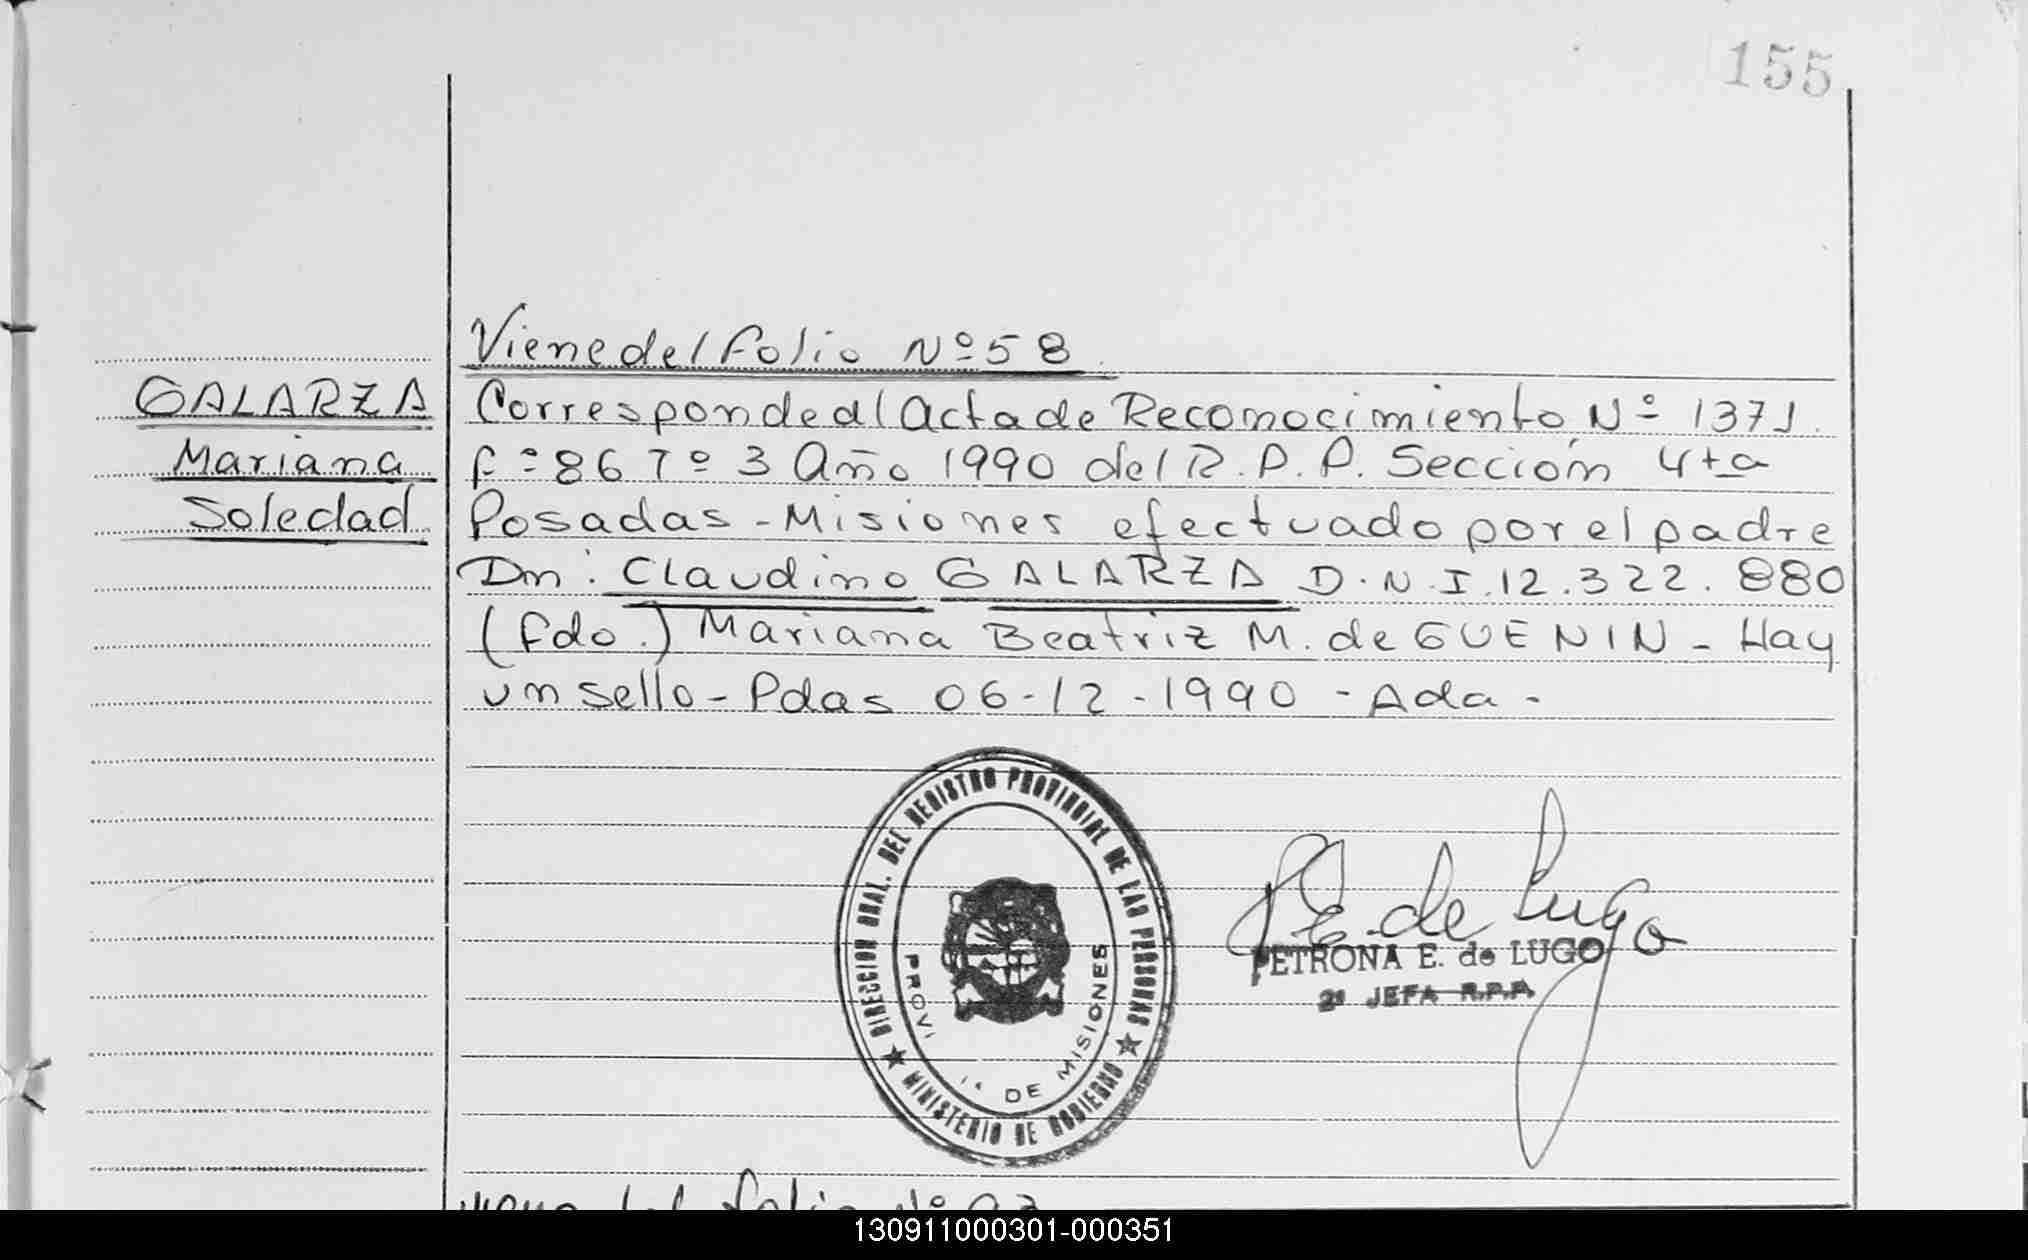 155
Viene del folio Nº 58
GALARZA
Mariana
Soledad
Corresponde al Acta de Reconocimiento Nº 1371
fº 86 Tº 3 Año 1990 del R.P.P. Sección 4ta
Posadas - Misiones efectuado por el padre
Dn. Claudino GALARZA D.N.I. 12.322.880
(fdo.) Mariana Beatriz M. de GUENIN - Hay
un sello - Pdas 06-12-1990 - Ada -
DIRECCION GRAL. DEL REGISTRO PROVINCIAL DE LAS PERSONAS
MINISTERIO DE GOBIERNO
PROVI ia DE MISIONES
P E. de Lugo
PETRONA E. de LUGO
2ª JEFA R.P.P.
del folio Nº
130911000301-000351